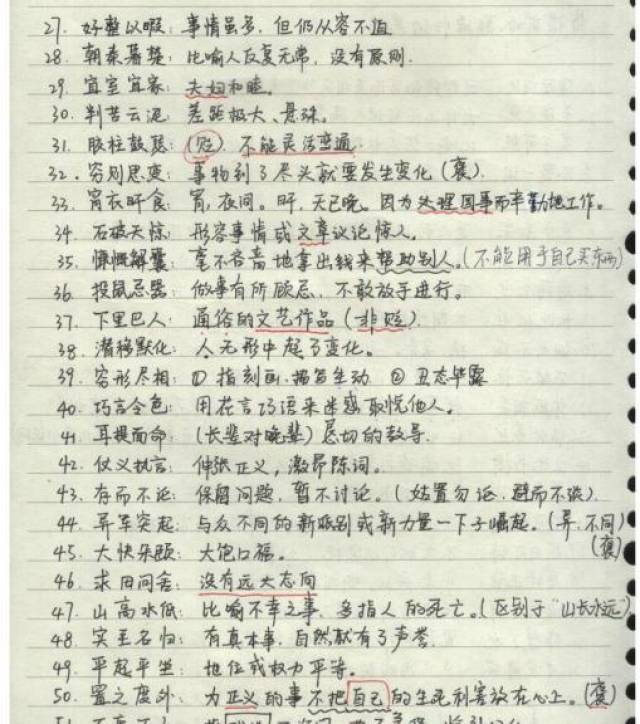 27. 好整以暇：事情虽多，但仍从容不迫
28. 朝秦暮楚：比喻人反复无常，没有原则.
29. 宜室宜家：夫妇和睦。
30. 判若云泥：差距极大、悬殊。
31. 胶柱鼓瑟：(贬)．不能灵活变通.
32. 穷则思变：事物到了尽头就要发生变化(褒).
33. 宵衣旰食：宵，夜间。旰，天已晚。因为处理国事而辛勤地工作。
34. 石破天惊：形容事情或文章议论惊人。
35. 慷慨解囊：毫不吝啬地拿出钱来帮助别人。(不能用于自己买东西)
36. 投鼠忌器：做事有所顾忌，不敢放手进行。
37. 下里巴人：通俗的文艺作品(非贬).
38. 潜移默化：人无形中起了变化。
39. 穷形尽相：① 指刻画．描写生动 ② 丑态毕露
40. 巧言令色：用花言巧语来迷惑取悦他人。
41 耳提面命：(长辈对晚辈)恳切的教导.
42. 仗义执言：伸张正义，激昂陈词。
43. 存而不论：保留问题，暂不讨论。(姑置勿论．避而不谈).
44. 异军突起：与众不同的新派别或新力量一下子崛起。(异：不同)
(褒)
45. 大快朵颐：大饱口福。
46. 求田问舍：没有远大志向
47. 山高水低：比喻不幸之事，多指人的死亡。(区别于"山长水远")
48. 实至名归：有真本事，自然就有了声誉.
49. 平起平坐：地位或权力平等。
50. 置之度外：为正义的事不把自己的生死利害放在心上。(褒)